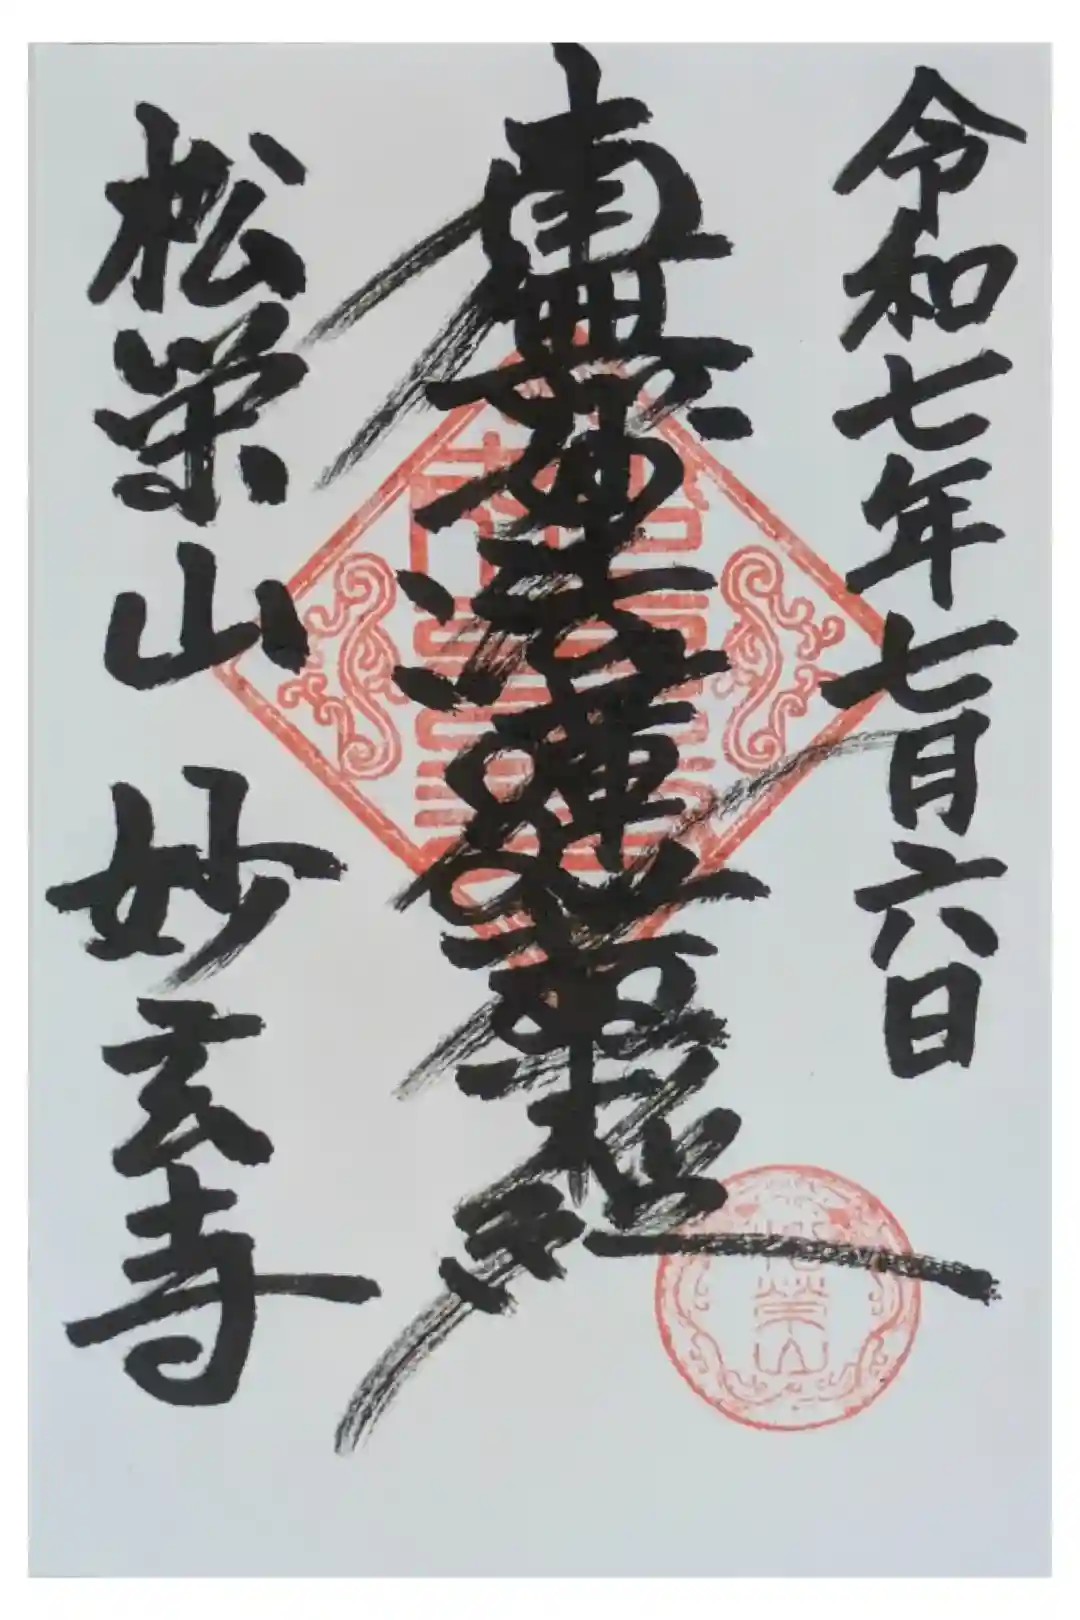 令和七年七月六日
南無妙法蓮華経
松栄山 妙玄寺
松榮山